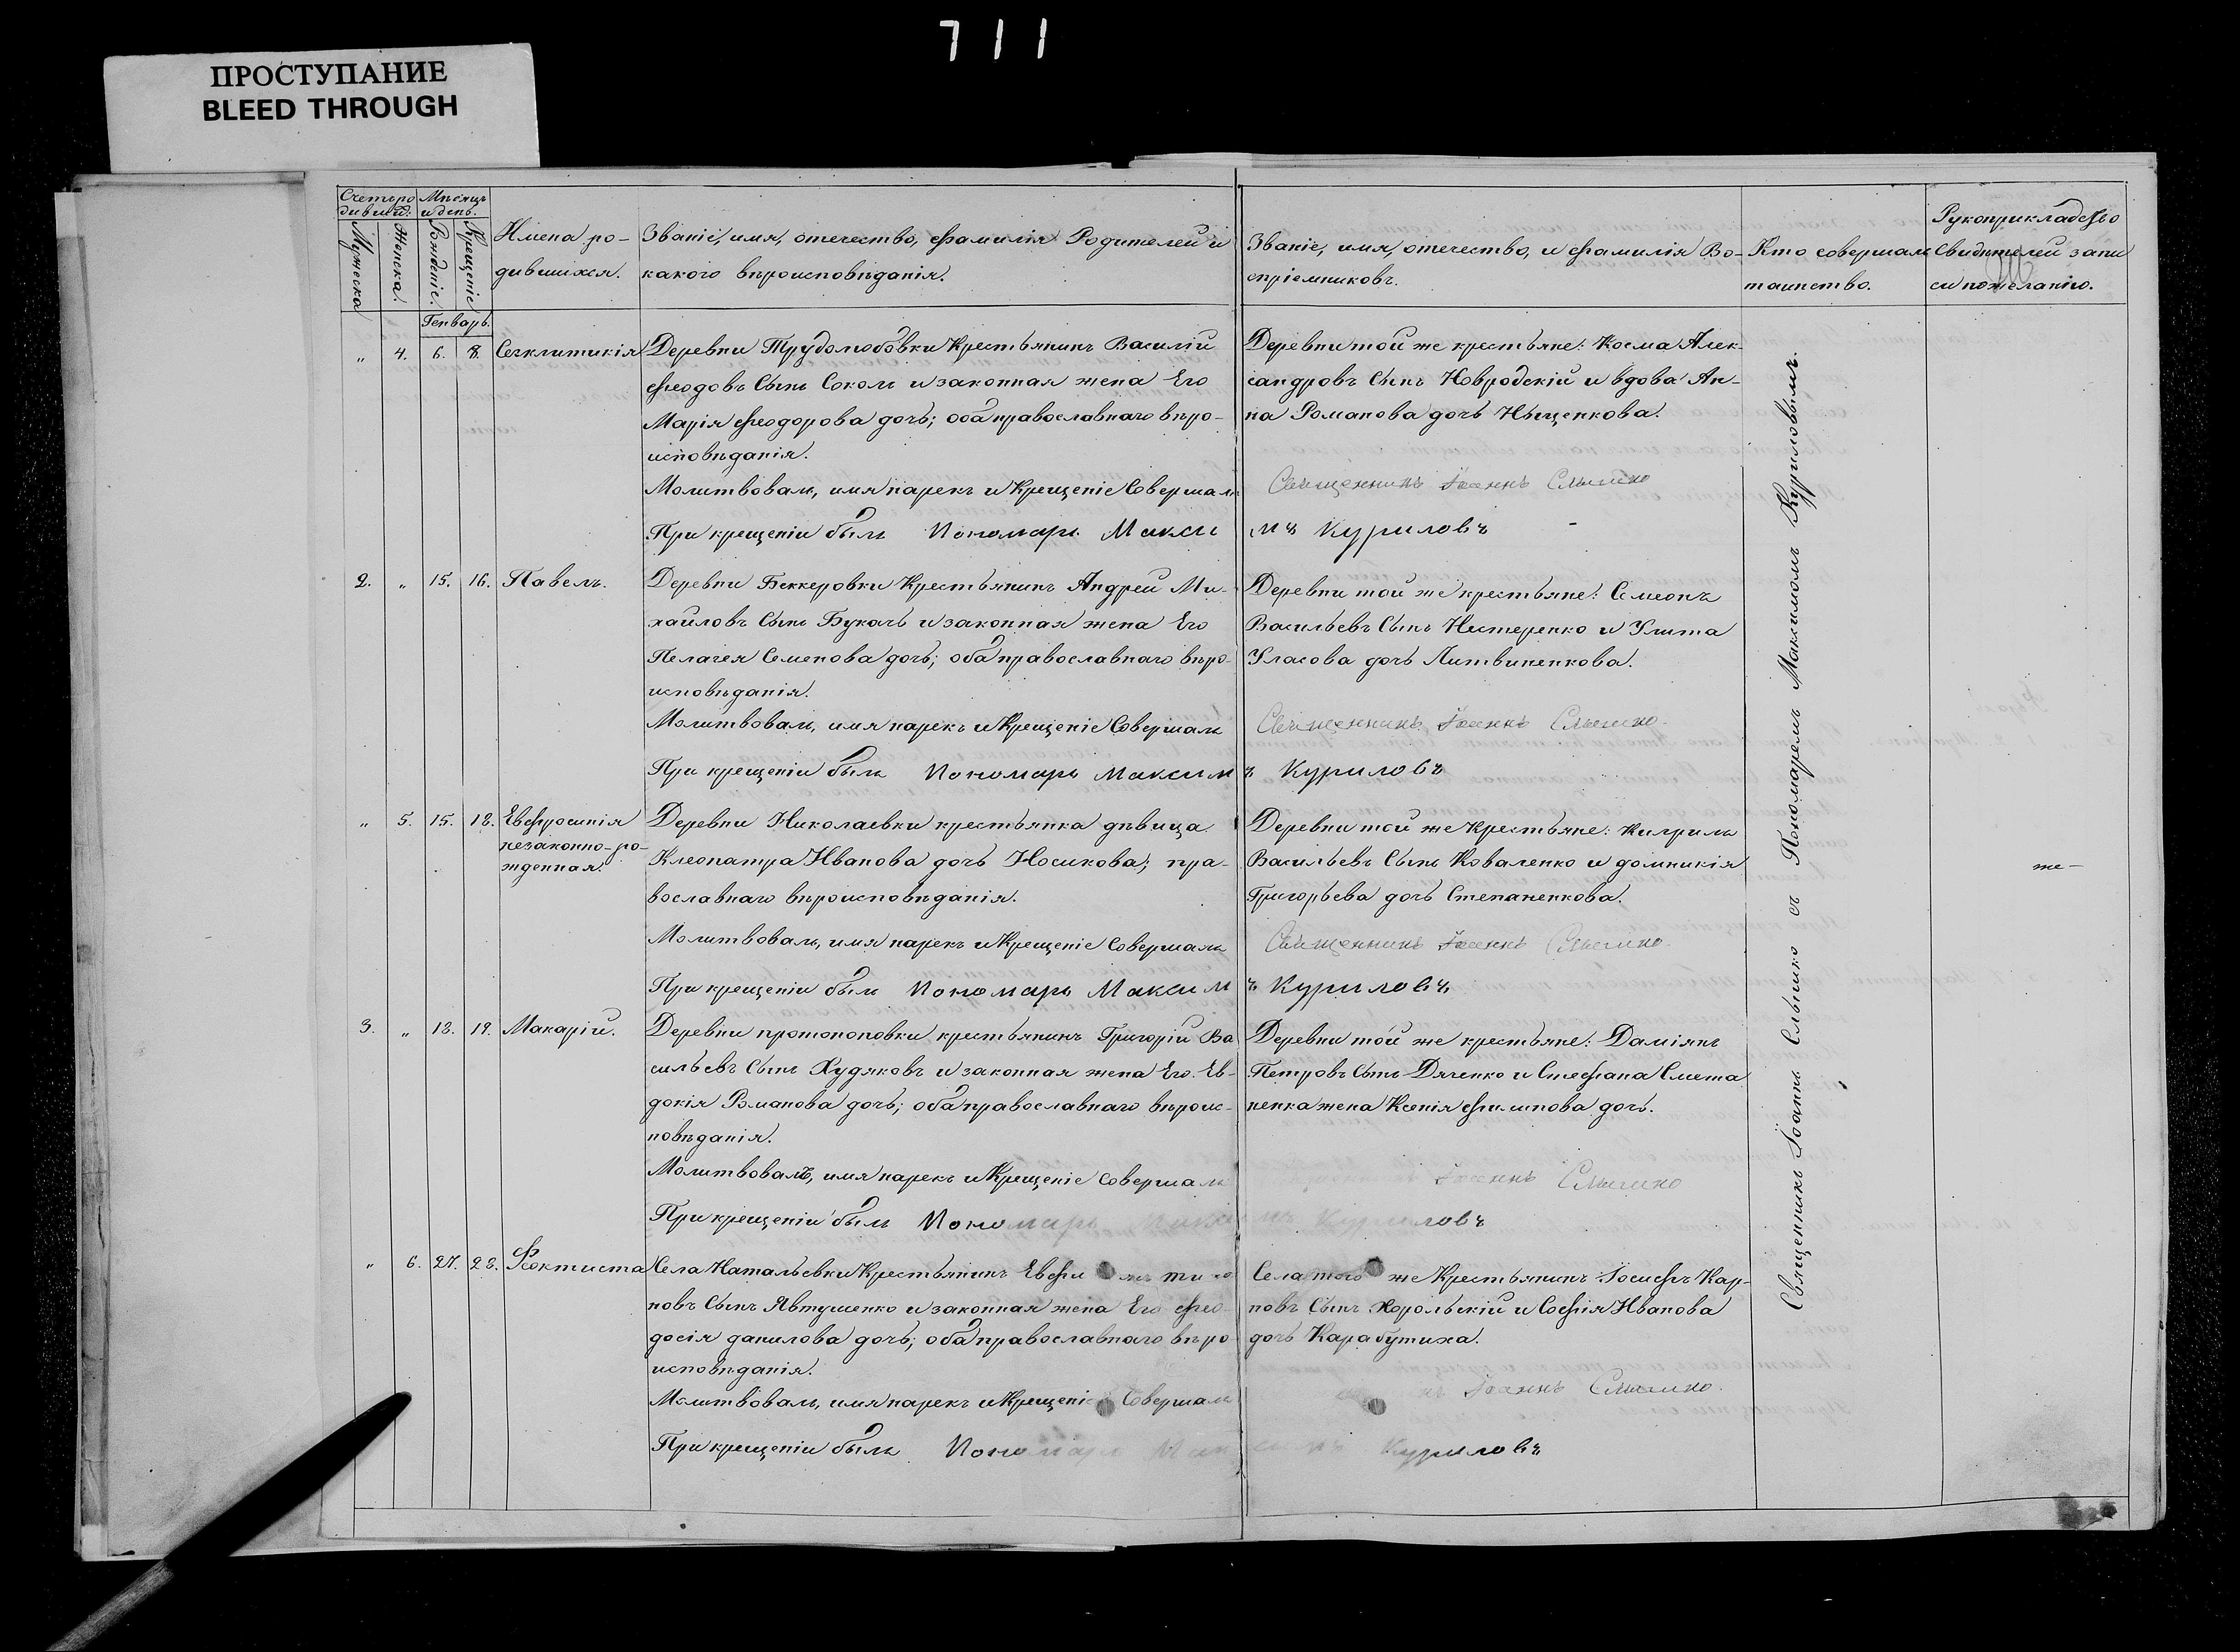 711
ПРОСТУПАНИЕ
BLEED THROUGH
Счетъ ро
дивший.
Мѣсяцъ
и день.
Мужеска
Женска.
Рожденіе.
Крещеніе
Имена ро-
дившихся.
Званіе, имя, отечество, фамилія Родителей и
какого вѣроисповѣданія.
Званіе, имя, отечество, и фамилія Во-
спріемниковъ.
Кто совершалъ
таинство.
Рукоприкладство
Свидѣтелей запи
си по желанію.
Генварь.
„ 4. 6. 8. Сегклитикія
Деревни Трудолюбовки Крестьянинъ Василій
Феодовъ Сынъ Соколъ и законная жена Его
Марія Феодорова дочь; оба православнаго вѣро-
исповѣданія.
Молитвовалъ, имя нарекъ и Крещеніе Совершалъ
При крещеніи былъ Пономарь Макси
Деревни той же крестьяне: Косма Алек-
сандровъ Сынъ Новродскій и вдова Ан-
на Романова дочь Ищенкова.
Священникъ Іоаннъ
мъ Куриловъ
2. „ 15. 16. Павелъ.
Деревни Беккеровки Крестьянинъ Андрей Ми-
хайловъ Сынъ Букачъ и законная жена Его
Пелагея Семенова дочь; оба православнаго вѣро-
исповѣданія.
Молитвовалъ, имя нарекъ и Крещеніе Совершалъ
При крещеніи былъ Пономарь Максим
Деревни той же крестьяне: Симеонъ
Васильевъ Сынъ Нестеренко и Улита
Уласова дочь Литвиненкова.
Священникъ Іоаннъ
ъ Куриловъ
„ 5. 15. 18. Евфросинія
незаконно-ро-
жденная.
Деревни Николаевки крестьянка дѣвица
Клеопатра Иванова дочь Носикова; пра-
вославнаго вѣроисповѣданія.
Молитвовалъ, имя нарекъ и Крещеніе Совершалъ
При крещеніи былъ Пономарь Максим
Деревни той же Крестьяне: Кирилъ
Васильевъ Сынъ Коваленко и домникія
Григорьева дочь Степаненкова.
Священникъ Іоаннъ
ъ Куриловъ
же-
3. „ 18. 19. Макарій.
Деревни протопоповки крестьянинъ Григорій Ва
сильевъ Сынъ Худяковъ и законная жена Его Ев-
докія Романова дочь; оба православнаго вѣроис-
повѣданія.
Молитвовалъ, имя нарекъ и Крещеніе совершалъ
При крещеніи былъ Пономарь Макси
Деревни той же крестьяне: Даміянъ
Петровъ Сынъ Дяченко и Стефана Смета
ненка жена Ксенія Филипова дочь.
Іоаннъ
мъ Куриловъ
„ 6. 27. 28. Феоктиста
Села Натальевки Крестьянинъ
новъ Сынъ Явтушенко и законная жена Его Фео-
досія данилова дочь; оба православнаго вѣро-
исповѣданія.
Молитвовалъ, имя нарекъ и Крещеніе Совершалъ
При крещеніи былъ Пономарь Мак
Села того же Крестьянинъ Іосифъ Кар-
повъ Сынъ Хорольскій и Софія Иванова
дочь Карабутиха.
Іоаннъ
симъ Куриловъ
Священникъ Іоаннъ съ Пономаремъ Максимомъ Куриловымъ.